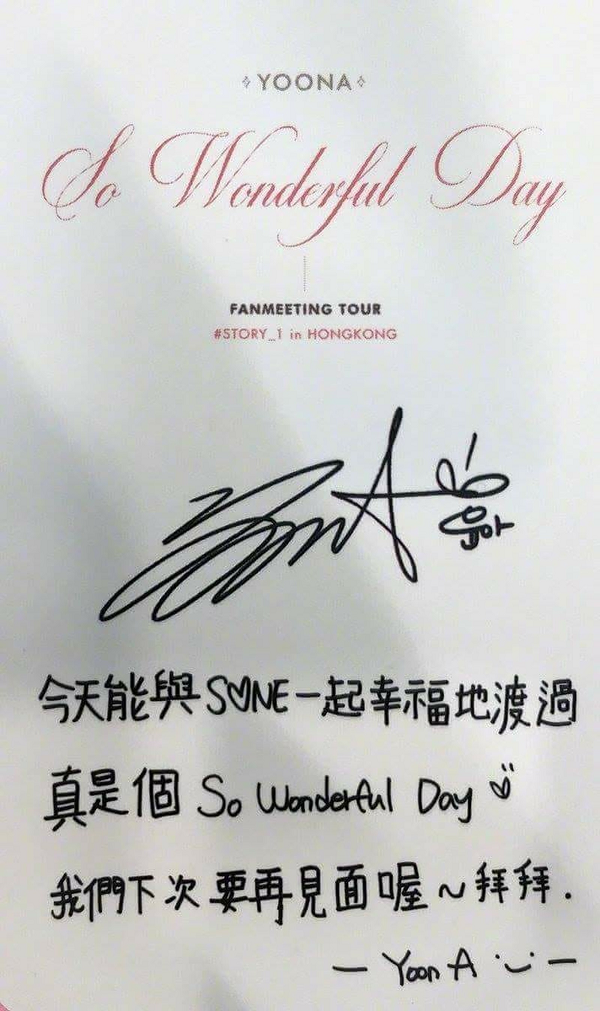 YOONA
So Wonderful Day
FANMEETING TOUR
#STORY_1 in HONGKONG
YoonA
윤아
今天能與S♡NE一起幸福地渡過
真是個 So Wonderful Day
我們下次要再見面喔~拜拜.
— YoonA —